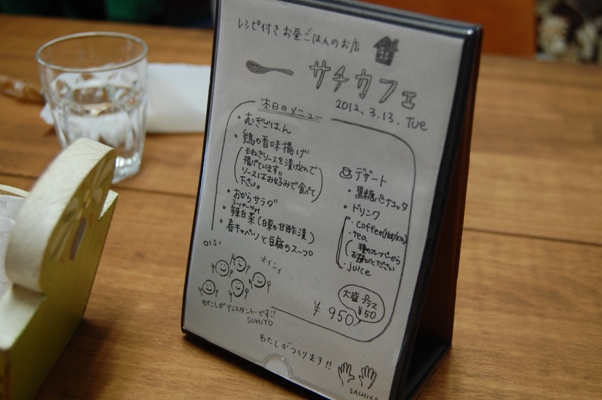 レシピ付きお昼ごはんのお店
サチカフェ
2012.3.13.Tue
本日のメニュー
・むぎごはん
・鶏の香味揚げ
(玉ねぎソースを漬け込んで
揚げています。
ソースはお好みで食べて
下さい。)
・おからサラダ
・辣白菜(白菜の甘酢漬)
・春キャベツと豆腐のスープ
デザート
・黒糖パンナコッタ
・ドリンク
・coffee(Hot/ice)
・tea
お選びください
・juice
大盛プラス
¥50
¥950
オイシイ
わたしがアシスタントです!!
SUMIYO
わたしがつくります!!
SACHIKO